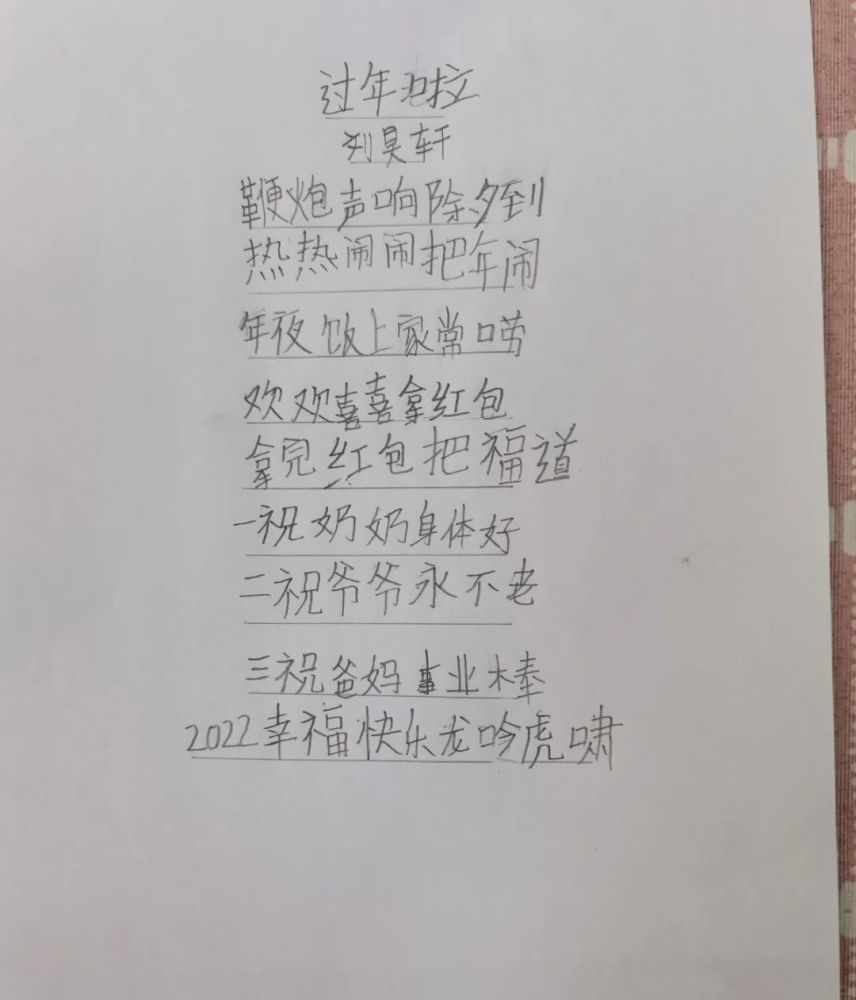 过年啦
刘昊轩
鞭炮声响除夕到
热热闹闹把年闹
年夜饭上家常唠
欢欢喜喜拿红包
拿完红包把福道
一祝奶奶身体好
二祝爷爷永不老
三祝爸妈事业棒
2022幸福快乐龙吟虎啸